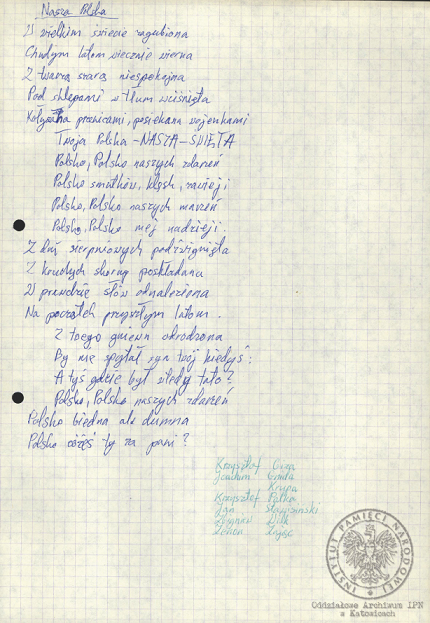 Nasza Polska
W wielkim świecie zagubiona
Chudym latom wiecznie wierna
Z twarzą szarą niespokojna
Pod sklepami w tłum wciśnięta
Kołysana prawicami, posiekana wojenkami
Twoja Polska - NASZA - ŚWIĘTA
Polsko, Polsko naszych zdarzeń
Polsko smutków, klęsk, zawieji
Polsko, Polsko naszych marzeń
Polsko, Polsko mej nadzieji.
Z dni sierpniowych podźwignięta
Z kruchych skorup poskładana
W prawdzie słów odnaleziona
Na początek przyszłym latom.
Z twego gniewu odrodzona
By nie spytał syn twój kiedyś:
A tyś gdzie był wtedy tato?
Polsko, Polsko naszych zdarzeń
Polsko biedna ale dumna
Polsko cóżeś ty za pani?
Krzysztof
Joachim Gnida
Krupa
Krzysztof Pałka
Jan
Zbigniew Wilk
Zenon Zając
INSTYTUT PAMIĘCI NARODOWEJ
Oddziałowe Archiwum IPN
w Katowicach